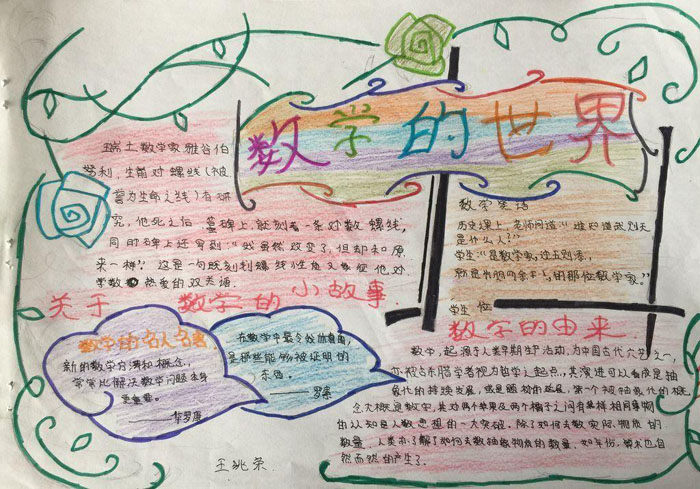 数学的世界
瑞士数学家雅谷伯
努利,生前对螺线(被
誉为生命之线)有研
究,他死之后,墓碑上就刻着一条对数螺线,
同时碑上还写到:"我虽然改变了,但却和原
来一样".这是一句既刻划螺线性质又象征他对
学数热爱的双关语.
关于数学的小故事
数学笑话
历史课上,老师问道:"谁知道武则天
是什么人?"
学生:"是数学家,这五则者,
学生位
数学的名人名言
新的数学方法和概念,
常常比解决数学问题本身
更重要。
——华罗庚
在数学中最令我欣喜的,
是那些能够被证明的
东西。
——罗素
数学的由来
数学,起源于人类早期生产活动,为中国古代六艺之一,
亦被古希腊学者视为哲学之起点,其演进可以看成是抽
象化的持续发展,或是题材的延展,第一个被抽象化的概
念大概是数字,其对两个苹果及两个橘子之间有某样相同事物
的认知是人数思想的一大突破.除了如何去数实际物质的
数量,人类亦了解了如何去数抽象物质的数量,如年份,算术也自
然而然的产生了.
王兆荣